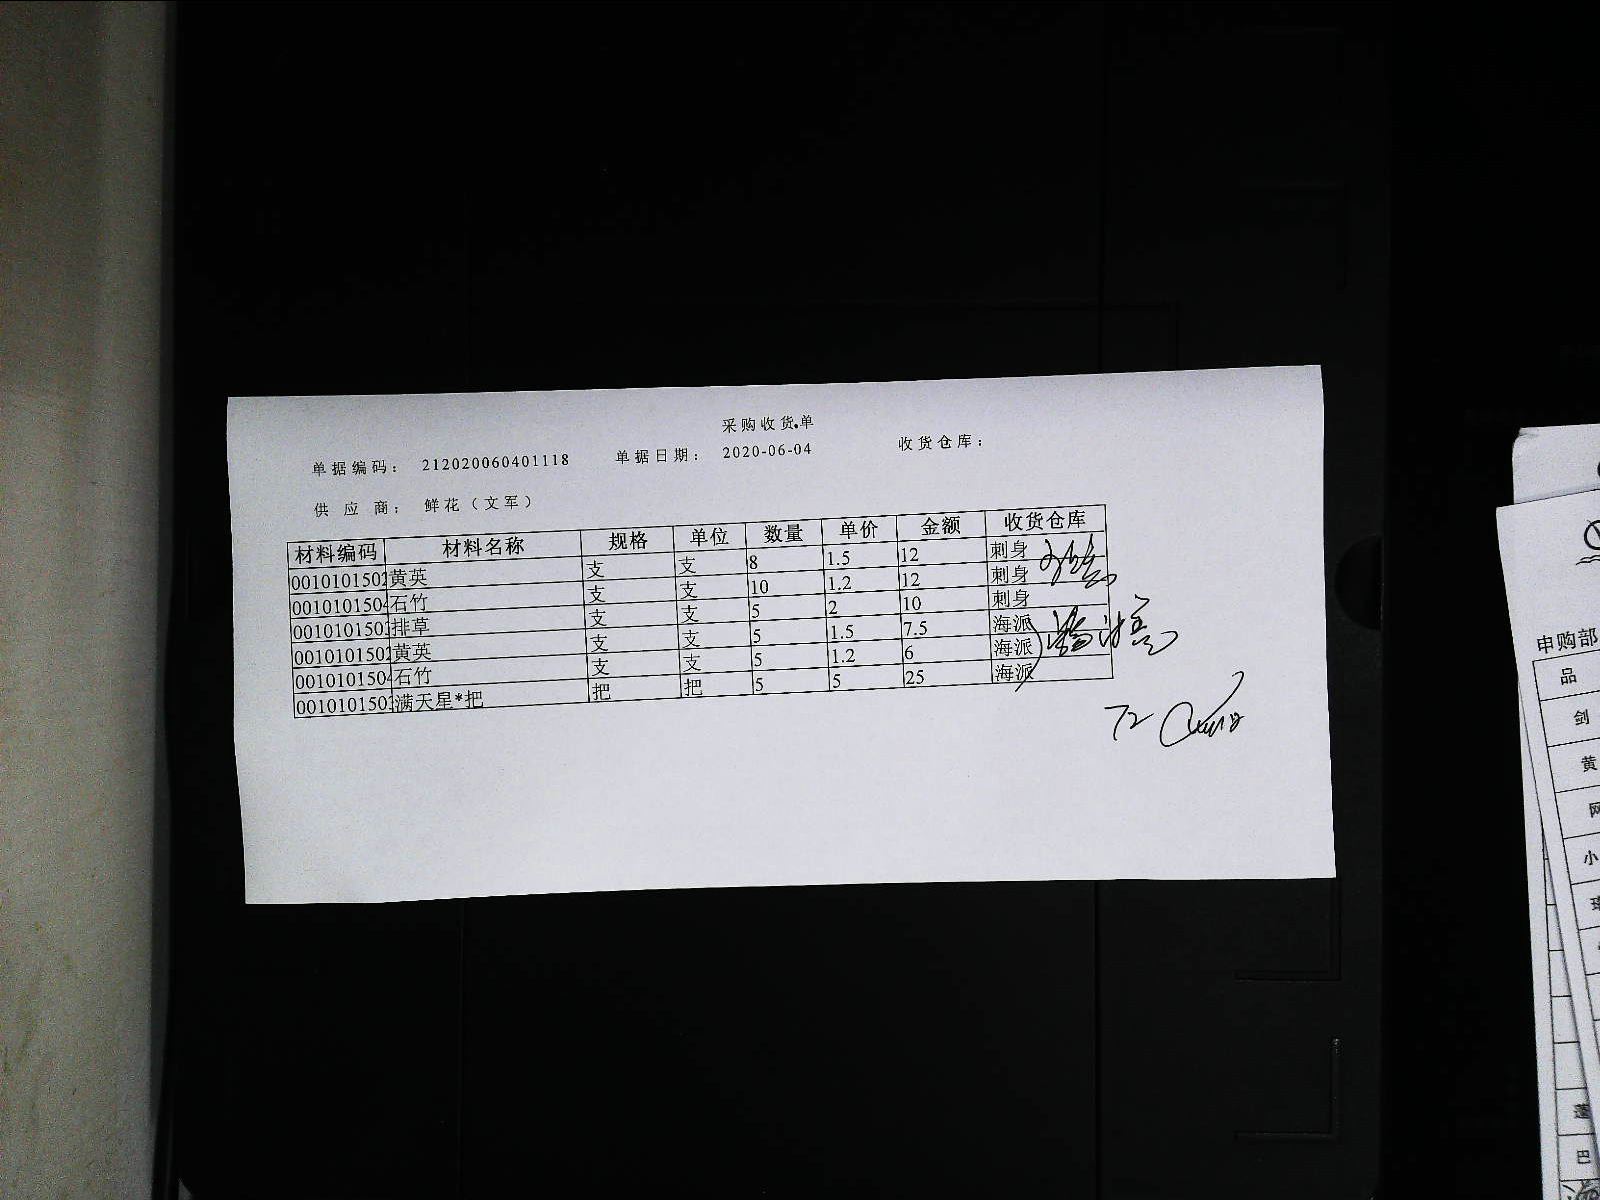 采购收货单
单据编码： 212020060401118 单据日期： 2020-06-04 收货仓库：
供应商： 鲜花（文军）
材料编码 材料名称 规格 单位 数量 单价 金额 收货仓库
0010101502 黄英 支 支 8 1.5 12 刺身
0010101504 石竹 支 支 10 1.2 12 刺身
001010150 排草 支 支 5 2 10 刺身
0010101502 黄英 支 支 5 1.5 7.5 海派
0010101504 石竹 支 支 5 1.2 6 海派
001010150 满天星*把 把 把 5 5 25 海派
72
申购部
品
剑
黄
网
小
蓬
巴